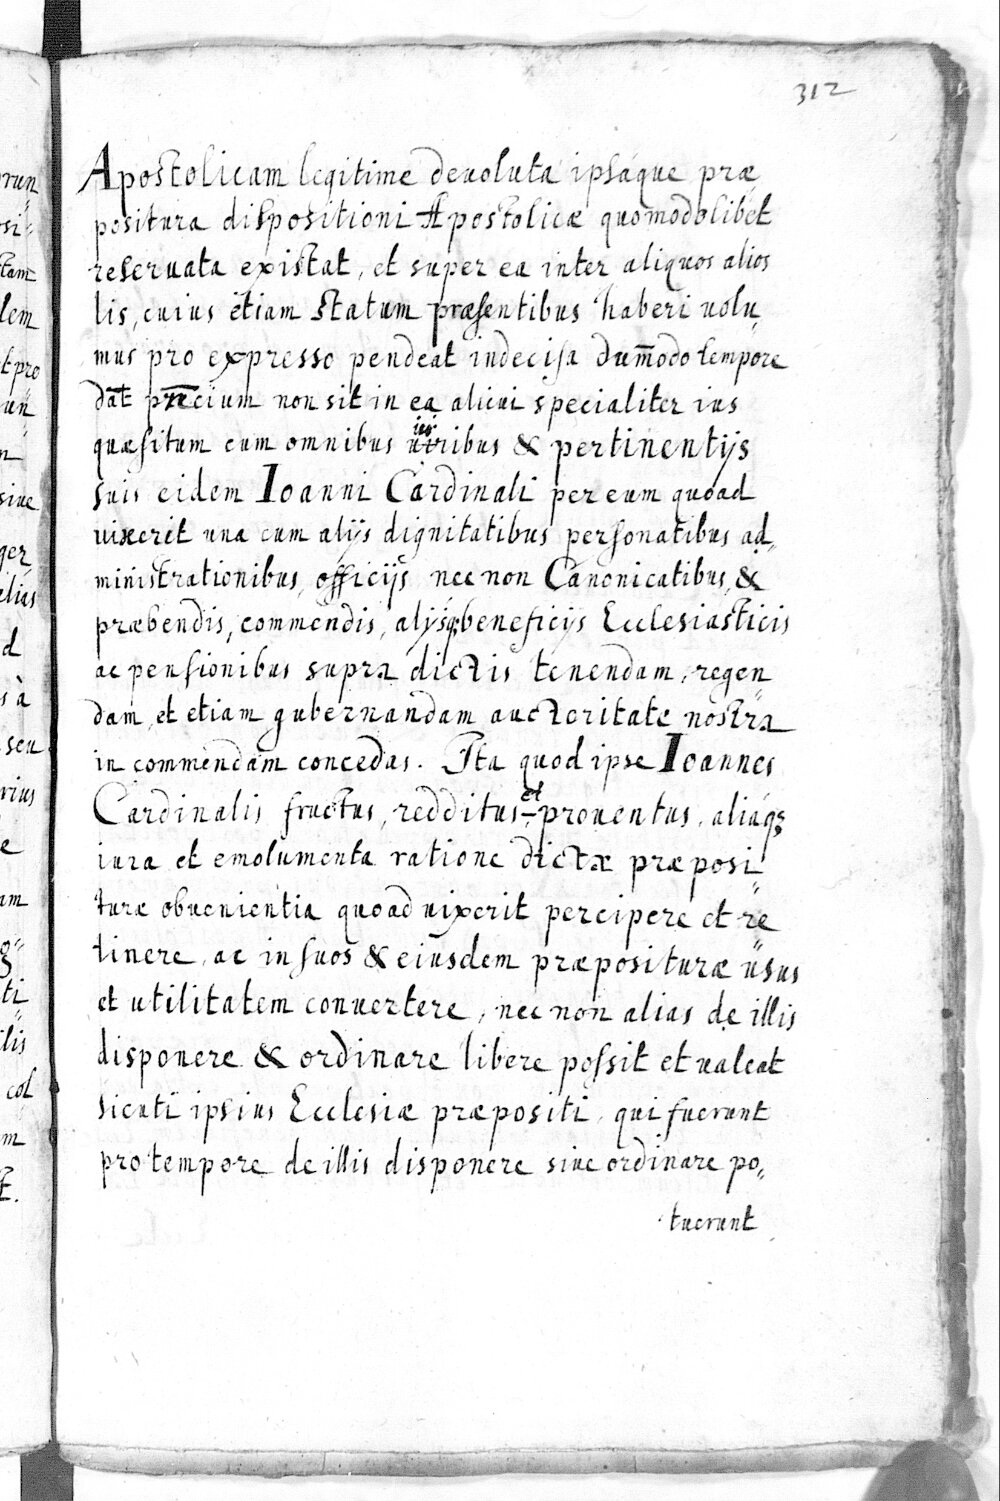 312
Apostolicam legitime deuoluta ipsáque præ
positura dispositioni Apostolicæ quomodolibet
reseruata existat, et super ea inter aliquos alios
lis, cuius etiam statum præsentibus haberi uolu„
mus pro expresso pendeat indecisa dum̄odo tempore
dat̄ pñcium non sit in ea alicui specialiter ius
quæsitum cum omnibus iuribus & pertinentijs
suis eidem Ioanni Cardinali per eum quoad
uixerit una cum alijs dignitatibus personatibus ad„
ministrationibus, officijs nec non Canonicatibus, &
præbendis, commendis, alijsq; beneficijs Ecclesiasticis
ac pensionibus supra dictis tenendam, regen„
dam, et etiam gubernandam auctoritate nostra
in commendam concedas. Ita quod ipse Ioannes
Cardinalis fructus, redditus et prouentus, aliáq;
iura et emolumenta ratione dictæ præposi„
turæ obuenientia quoad uixerit percipere et re„
tinere, ac in suos & eiusdem præposituræ usus
et utilitatem conuertere, nec non alias de illis
disponere & ordinare libere possit et ualeat
sicuti ipsius Ecclesiæ præpositi, qui fuerunt
pro tempore de illis disponere siue ordinare po„
tuerunt